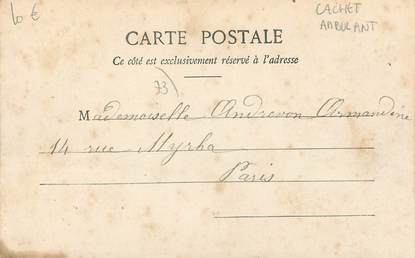 10 €
CACHET
AMBULANT
CARTE POSTALE
Ce côté est exclusivement réservé à l'adresse
73
Mademoiselle Andrevon Armandine
14 rue Myrha
Paris